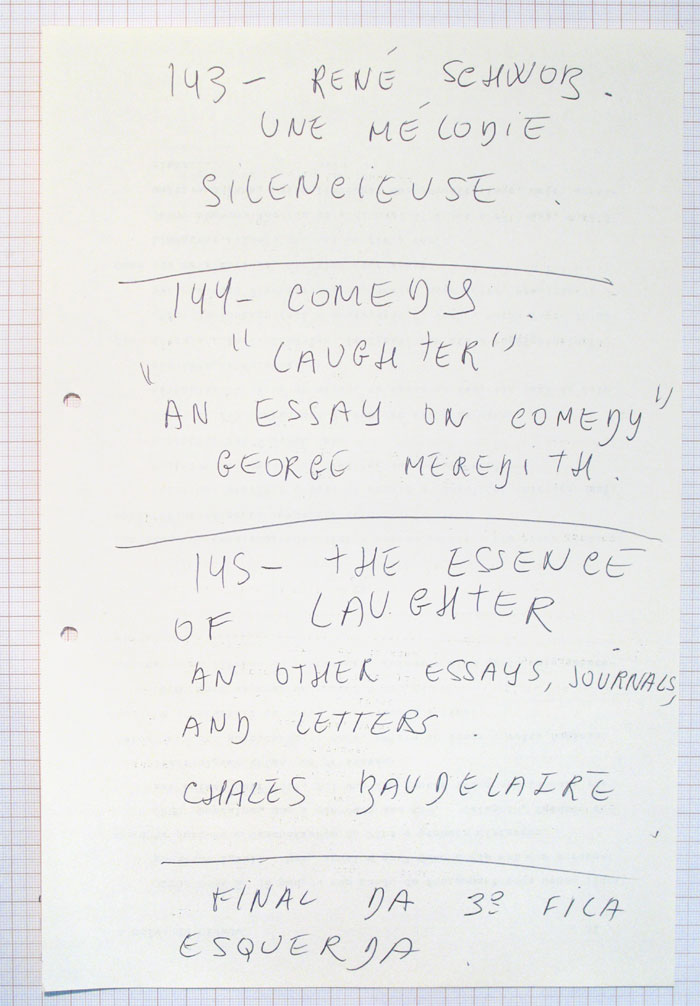 143 – RENÉ SCHWOB.
UNE MÉLODIE
SILENCIEUSE.
144 – COMEDY.
"LAUGHTER"
"AN ESSAY ON COMEDY"
GEORGE MEREDITH.
145 – THE ESSENCE
OF LAUGHTER
AN OTHER ESSAYS, JOURNALS,
AND LETTERS.
CHALES BAUDELAIRE
FINAL DA 3º FILA
ESQUERDA.